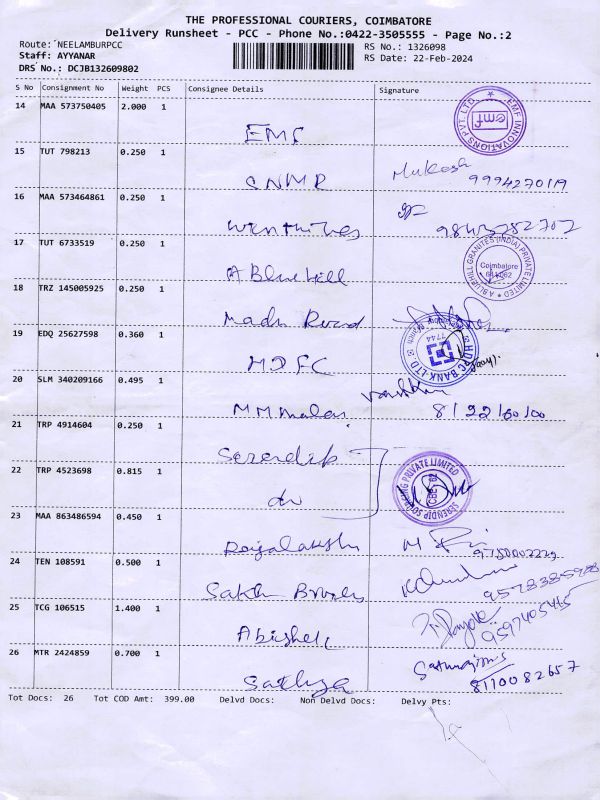 THE PROFESSIONAL COURIERS, COIMBATORE
Delivery Runsheet - PCC - Phone No.:0422-3505555 - Page No.:2
Route: NEELAMBURPCC RS No.: 1326098
Staff: AYYANAR RS Date: 22-Feb-2024
DRS No.: DCJB132609802
S No Consignment No Weight PCS Consignee Details Signature
14 MAA 573750405 2.000 1
EMF EMF INNOVATIONS PVT. LTD. emf
15 TUT 798213 0.250 1
SNMR Mukesh 9994270119
16 MAA 573464861 0.250 1
9843252702
17 TUT 6733519 0.250 1
A Bluehill A BLUEHILL GRANITES (INDIA) PRIVATE LIMITED Coimbatore
18 TRZ 145005925 0.250 1
Madu
19 EDQ 25627598 0.360 1
HDFC HDFC BANK LTD. 7744
20 SLM 340209166 0.495 1
21 TRP 4914604 0.250 1
Serendip
22 TRP 4523698 0.815 1
do SERENDIP SOURCING PRIVATE LIMITED
23 MAA 863486594 0.450 1
24 TEN 108591 0.500 1
Sakthi
25 TCG 106515 1.400 1
Abishek
26 MTR 2424859 0.700 1
Sathya 8110082657
Tot Docs: 26 Tot COD Amt: 399.00 Delvd Docs: Non Delvd Docs: Delvy Pts: